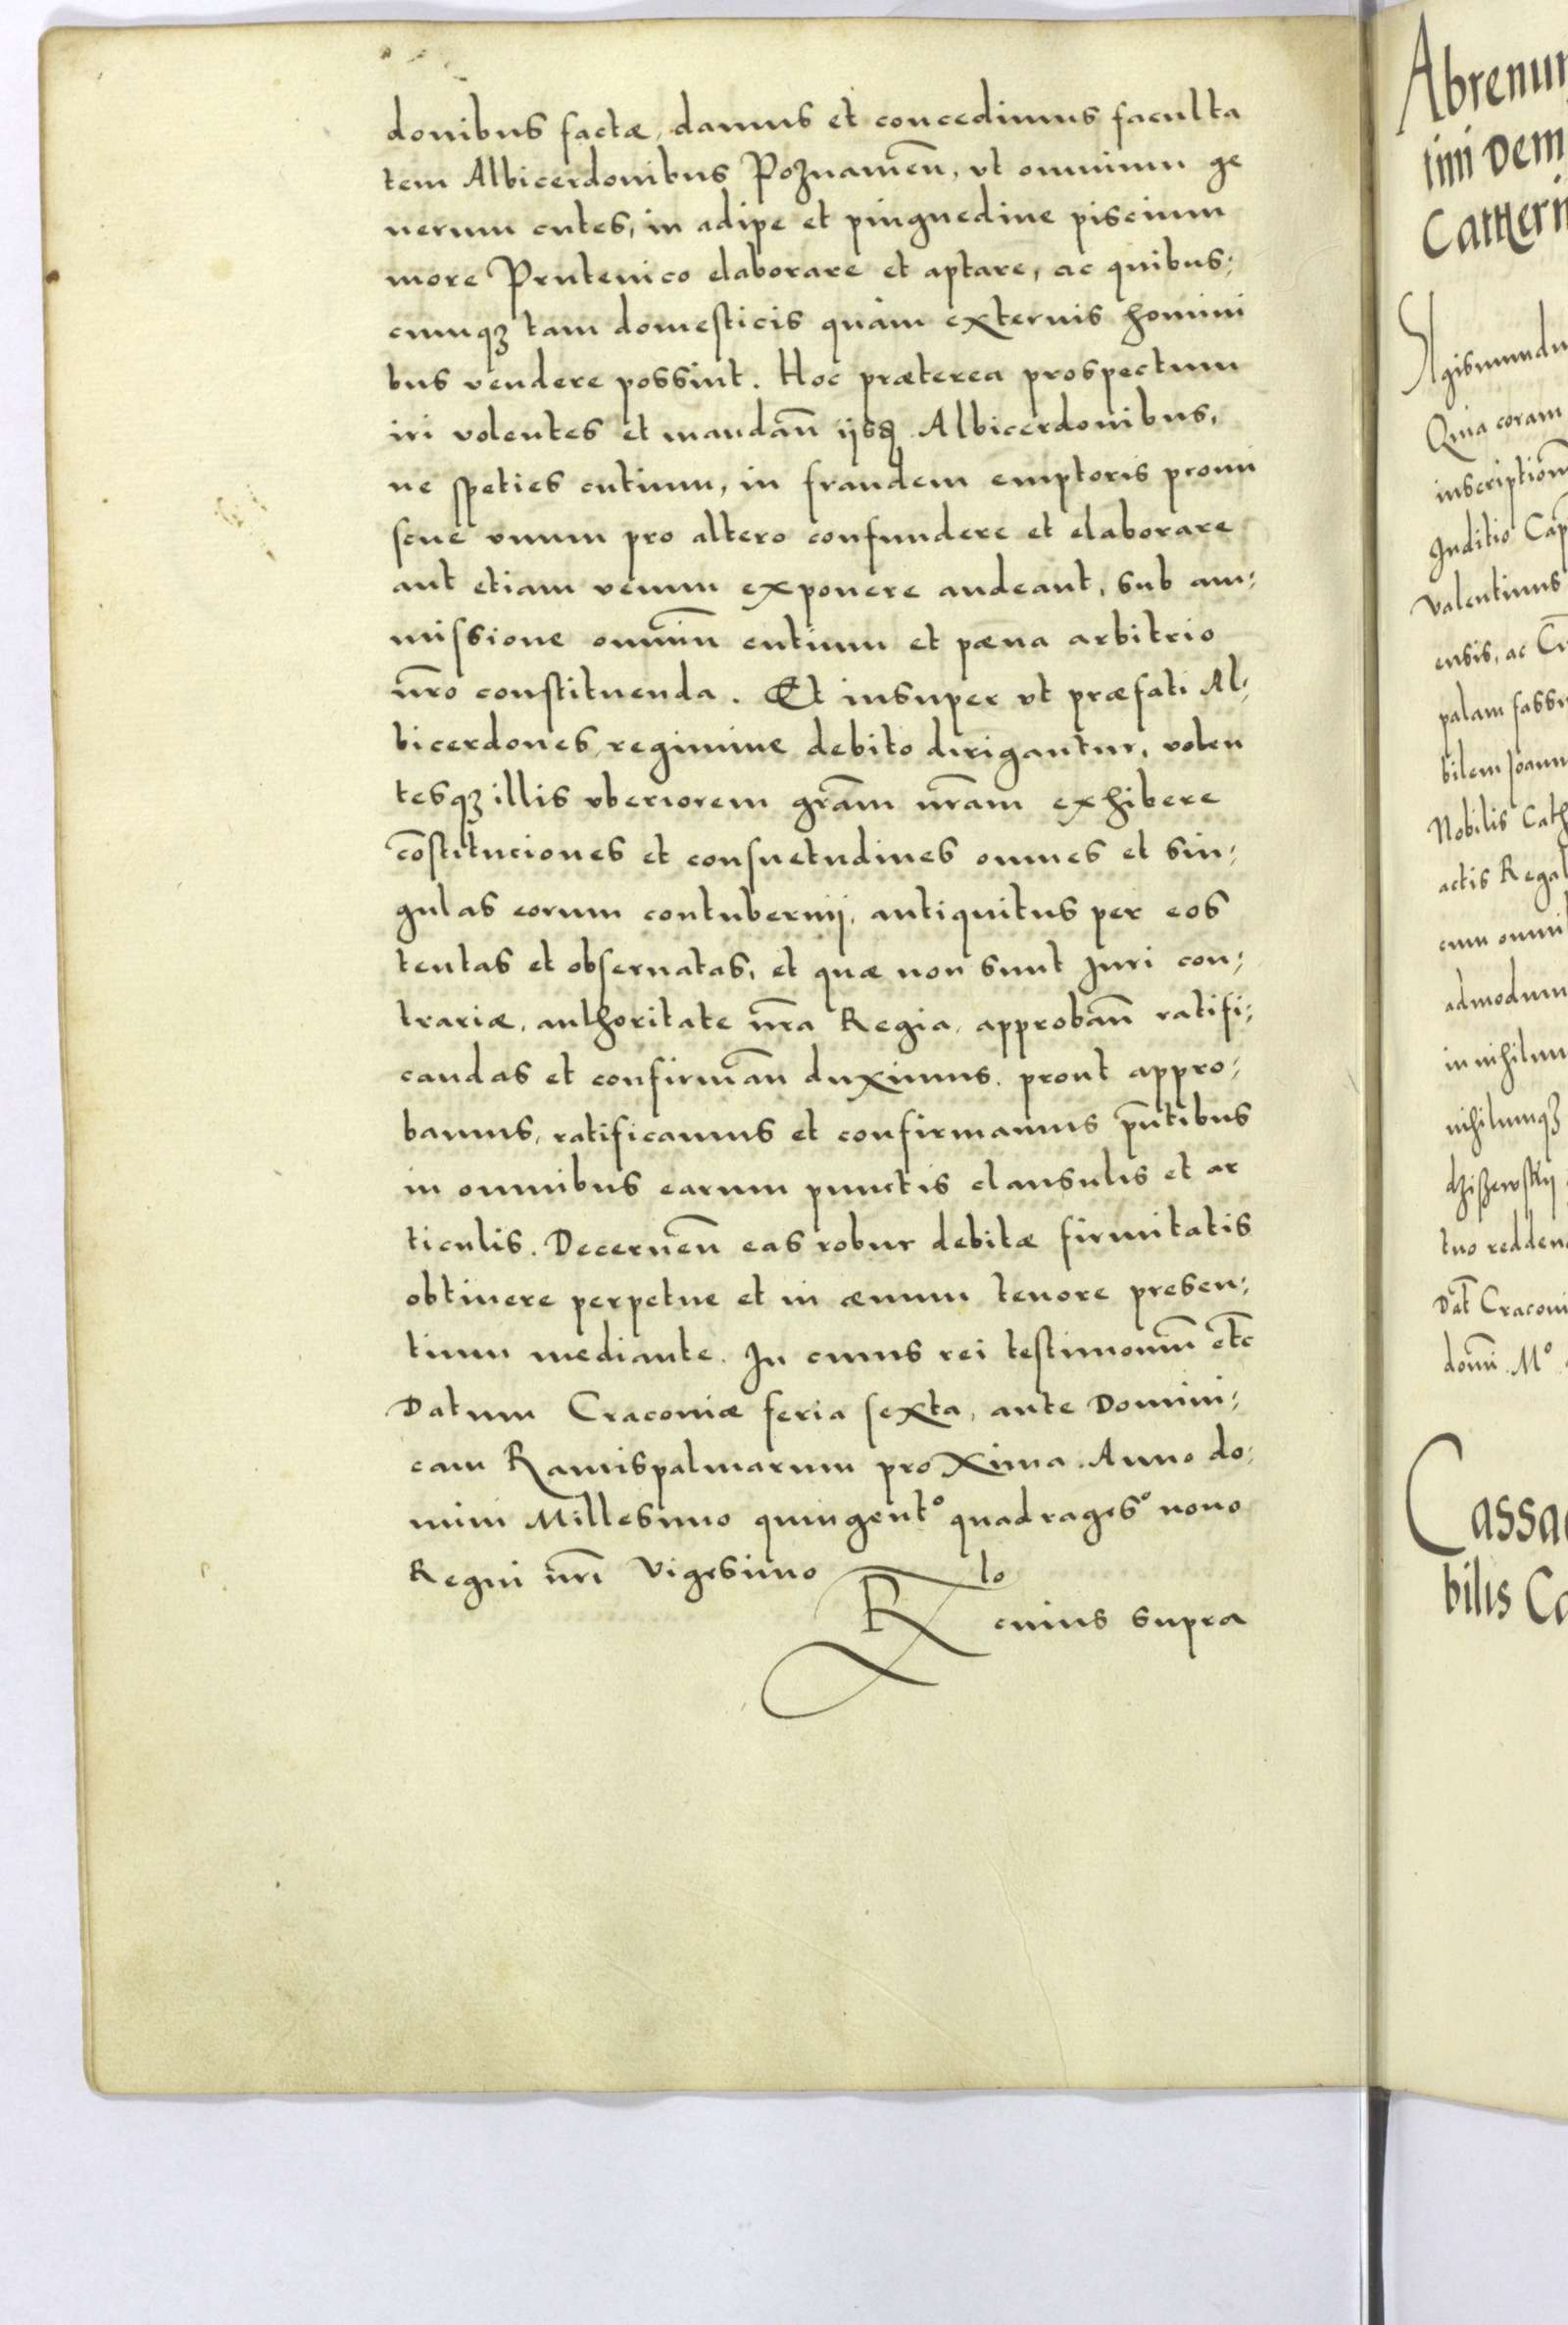 donibus factæ, damus et concedimus faculta
tem Albicerdonibus Poznamen̄, vt omnium ge
nerum cutes, in adipe et pinguedine piscium
more Prutenico elaborare et aptare, ac quibus;
cumqꝫ tam domesticis quàm externis homini
bus vendere possint. Hoc præterea prospectum
iri volentes et mandan̄ ijsꝗ Albicerdonibus,
ne speties cutium, in fraudem emptoris promi
scue vnum pro altero confundere et elaborare
aut etiam venum exponere audeant, sub am;
missione omniū cutium et pæna arbitrio
nr̄o constituenda. Et insuper vt præfati Al;
bicerdones regimine debito dirigantur, volen
tesqꝫ illis vberiorem grām nr̄am exhibere
cōstituciones et consuetudines omnes et sin;
gulas eorum contubernij, antiquitus per eos
tentas et obseruatas, et quæ non sunt Juri con;
trariæ, authoritate nr̄a Regia, approban̄ ratifi;
candas et confirman̄ duximus. prout appro;
bamus, ratificamus et confirmamus pn̄tibus
in omnibus earum punctis clausulis et ar
ticulis. Decernen̄ eas robur debitæ firmitatis
obtinere perpetue et in æuum tenore presen;
tium mediante. In cuius rei testimoniū etc̄
Datum Cracouiæ feria sexta, ante Domini;
cam Ramispalmarum proxima. Anno do;
mini Millesimo quingentº quadragesº nono
Regni nr̄i Vigesimo
R lo
cuius supra
Abrenun
timi Dem
Catheri
gismundu
Quia coram
inscription̄
Juditio Cap
Valentinus
ensis, ac
palam fassu
bilem Joann
Nobilis Cath
actis Regal
cum omni
admodum
in nihilum
nihilumqꝫ
tuo redden
Dat̄ Cracoui
domī Mº
Cassa
bilis Ca